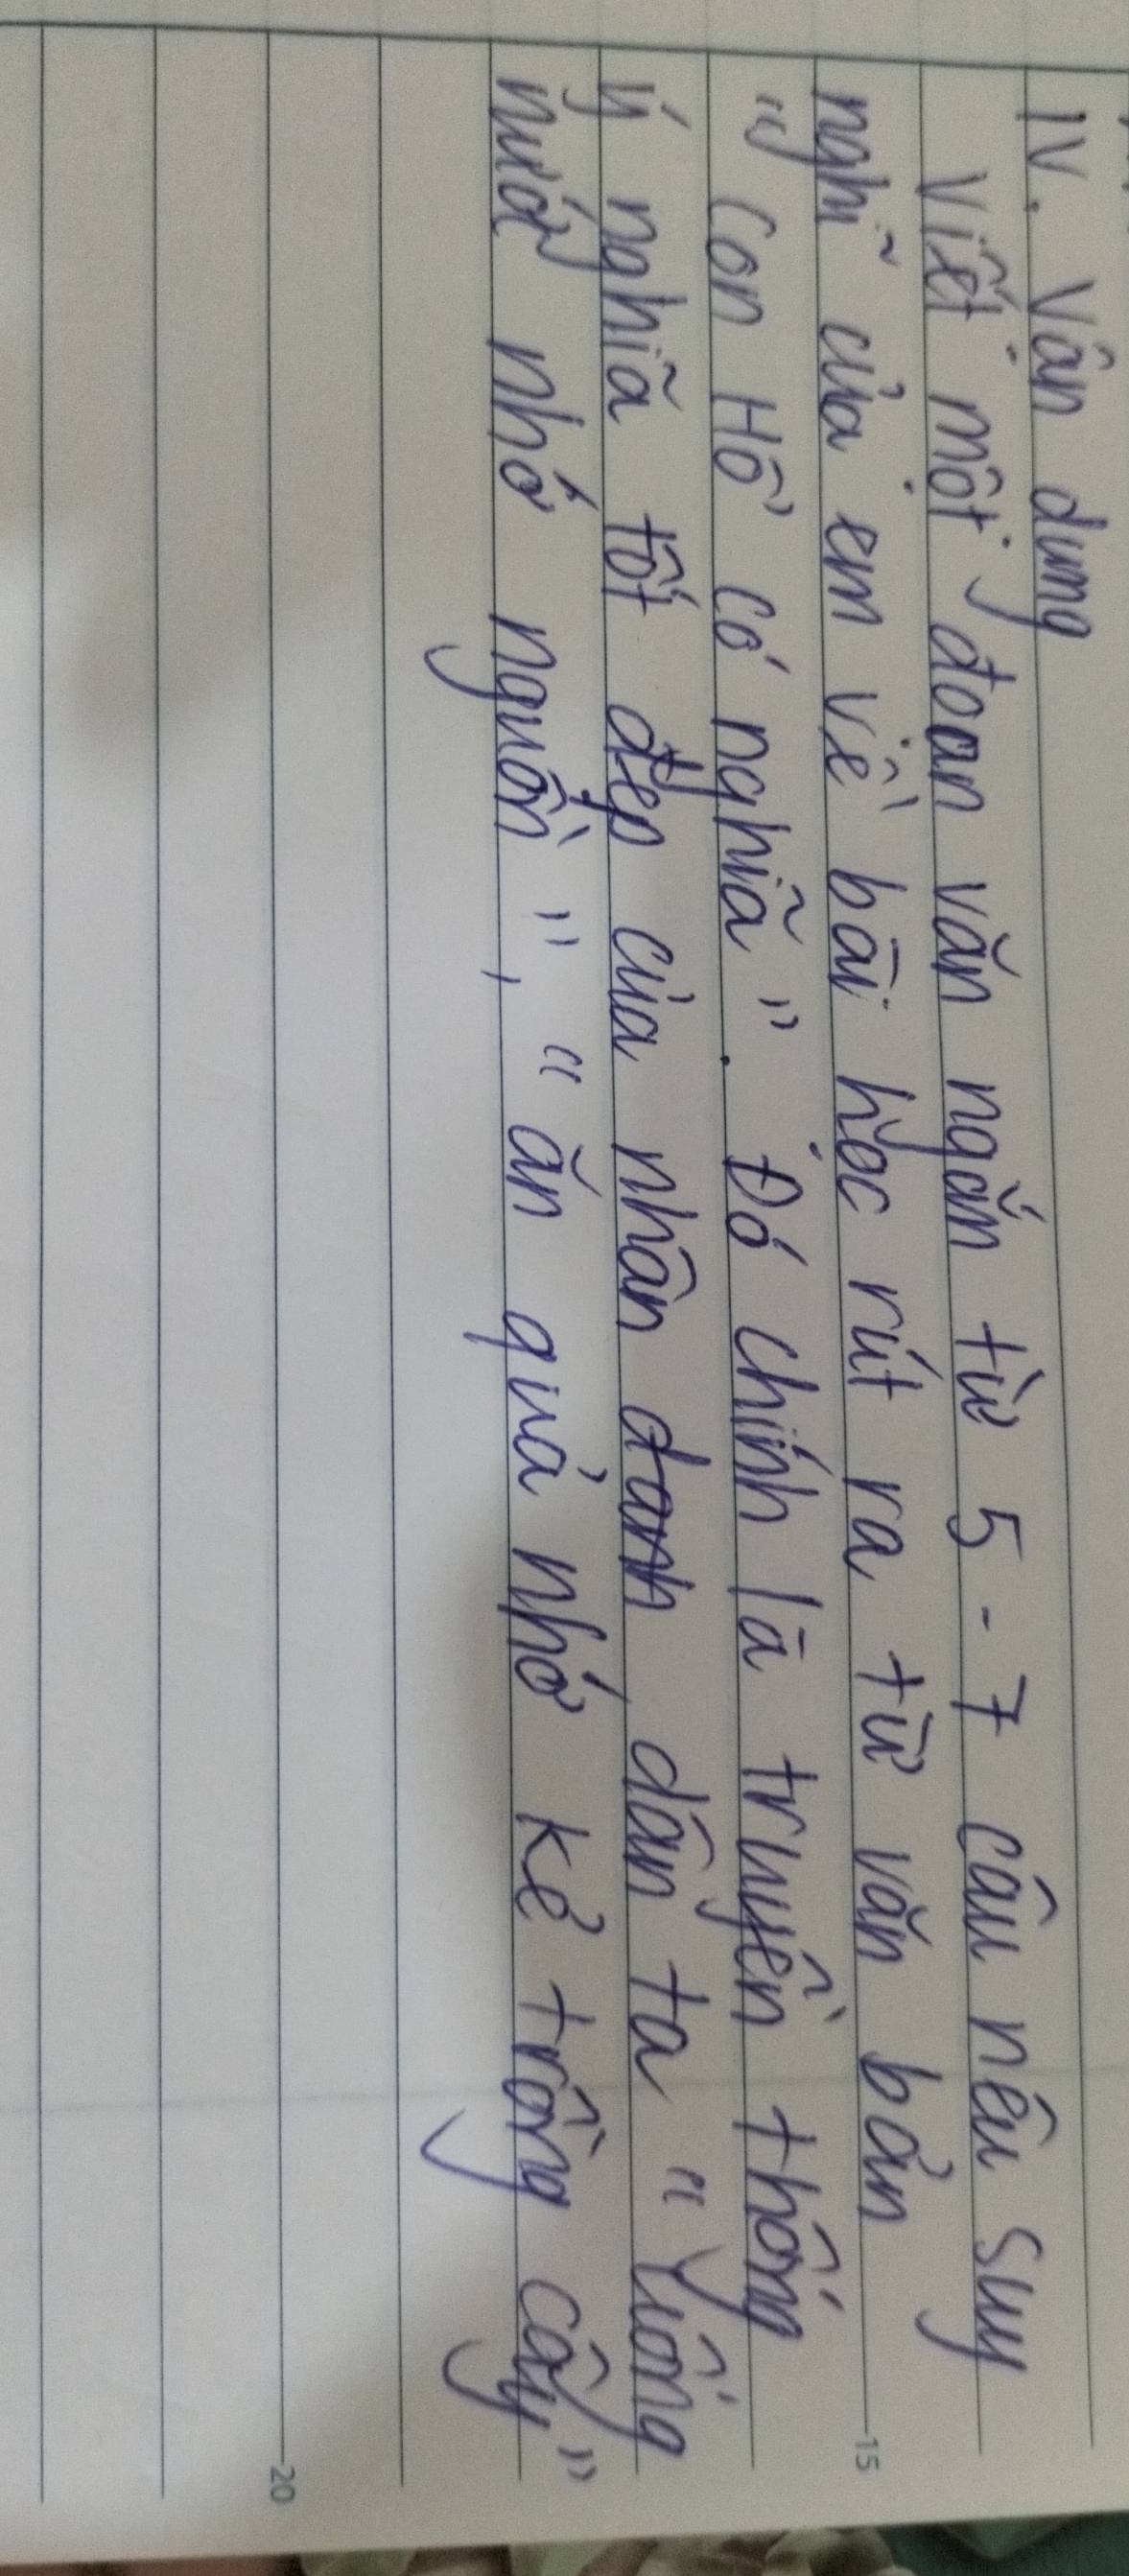 IV. Vận dụng
Viết một đoạn văn ngắn từ 5 - 7 câu nêu suy
nghĩ của em về bài học rút ra từ văn bản
" Con Hổ có nghĩa ". Đó chính là truyền thống
ý nghĩa tốt đẹp của nhân dân ta " Uống
nước nhớ nguồn ", " ăn quả nhớ kẻ trồng cây "
15
20